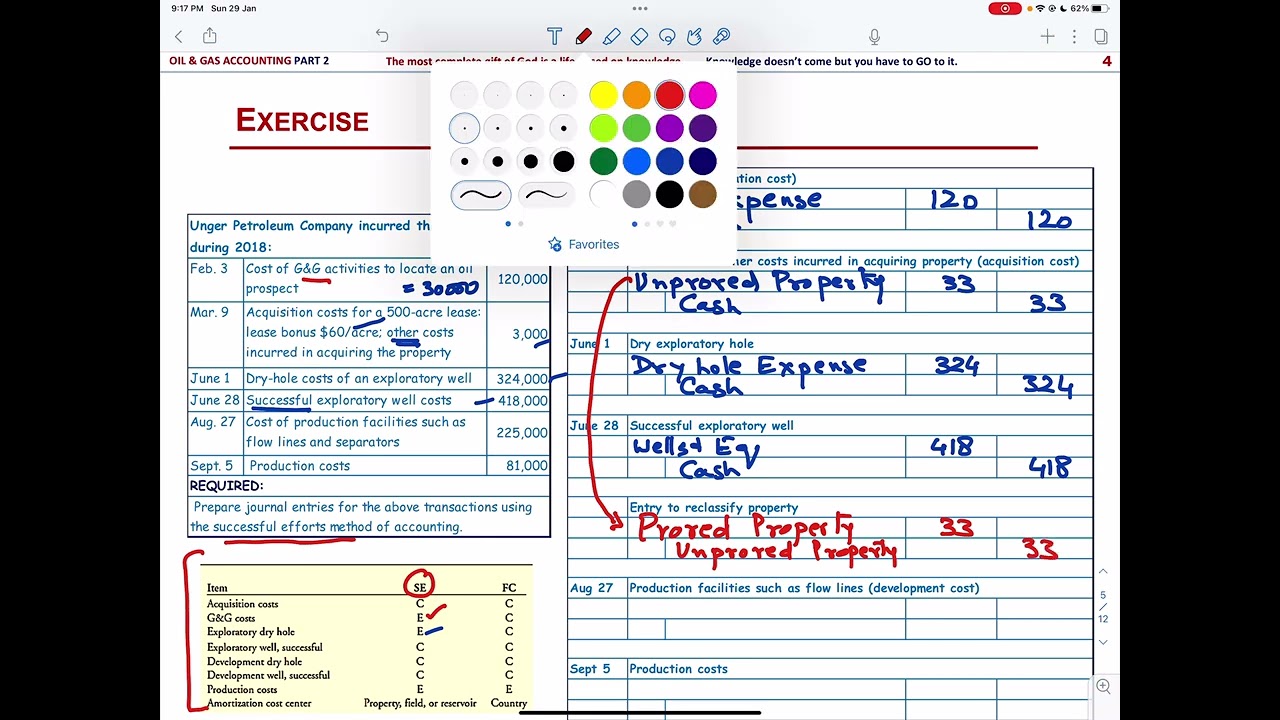 9:17 PM Sun 29 Jan
62%
OIL & GAS ACCOUNTING PART 2
The most complete gift of God is a life based on knowledge
Knowledge doesn't come but you have to GO to it.
4
EXERCISE
Favorites
Unger Petroleum Company incurred th
during 2018:
Feb. 3 Cost of G&G activities to locate an oil prospect 120,000
= 30000
Mar. 9 Acquisition costs for a 500-acre lease:
lease bonus $60/acre; other costs 3,000
incurred in acquiring the property
June 1 Dry-hole costs of an exploratory well 324,000
June 28 Successful exploratory well costs 418,000
Aug. 27 Cost of production facilities such as
flow lines and separators 225,000
Sept. 5 Production costs 81,000
REQUIRED:
Prepare journal entries for the above transactions using
the successful efforts method of accounting.
Item SE FC
Acquisition costs C C
G&G costs E C
Exploratory dry hole E C
Exploratory well, successful C C
Development dry hole C C
Development well, successful C C
Production costs E E
Amortization cost center Property, field, or reservoir Country
tion cost)
spense 120
120
er costs incurred in acquiring property (acquisition cost)
Unproved Property 33
Cash 33
June 1 Dry exploratory hole
Dry hole Expense 324
Cash 324
June 28 Successful exploratory well
Wells & Eq 418
Cash 418
Entry to reclassify property
Proved Property 33
Unproved Property 33
Aug 27 Production facilities such as flow lines (development cost)
Sept 5 Production costs
5
/
12